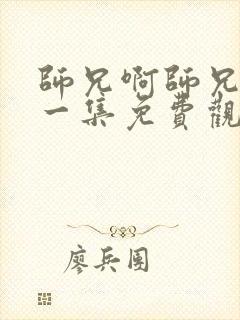 師兄啊師兄
一集免費觀
廖兵團